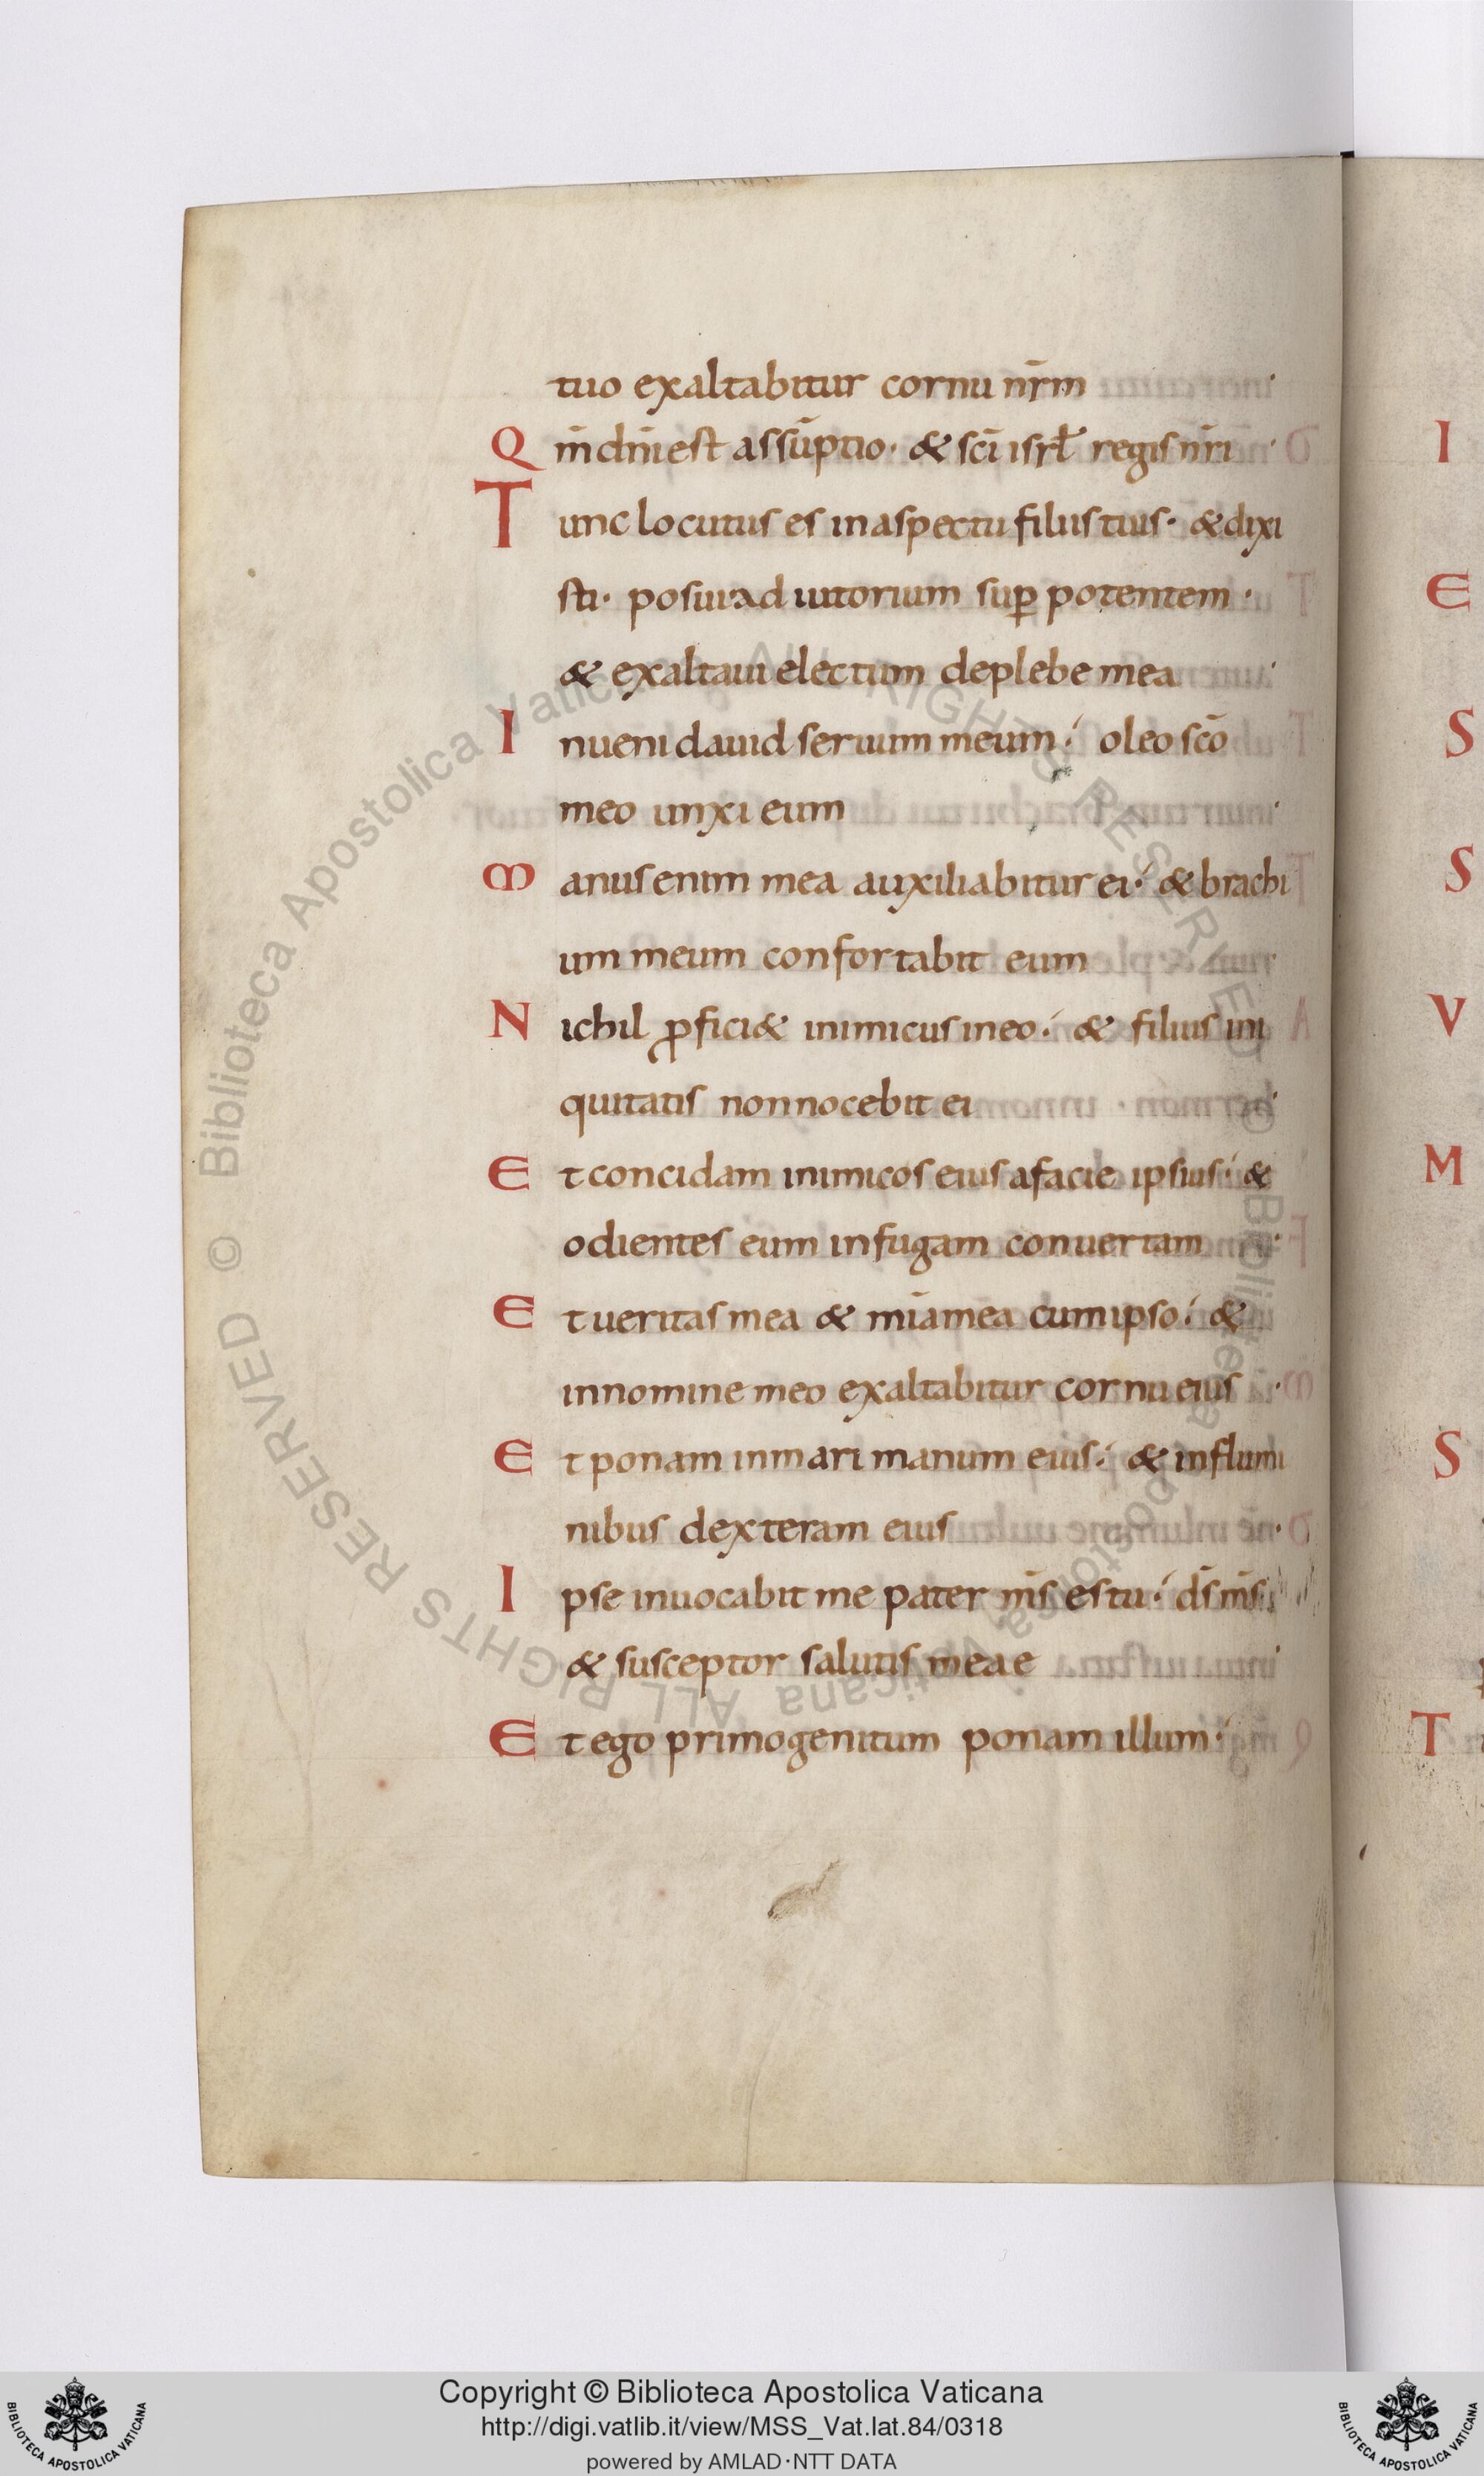 tuo exaltabitur cornu nr̄m
Q m̄ dn̄i est assūptio· & sc̄i isrł regis nr̄i ·
T unc locutus es in aspectu filiis tuis· & dixi
sti· posui adiutorium sup̱ potentem ·
& exaltaui electum de plebe mea ·
I nueni dauid seruum meum ⸵ oleo sc̄o
meo unxi eum ·
M anus enim mea auxiliabitur ei ⸵ & brachi
um meum confortabit eum ·
N ichil ꝓfici& inimicus in eo ⸵ & filius ini
quitatis non nocebit ei ·
E t concidam inimicos eius a facie ipsius ⸵ &
odientes eum in fugam conuertam ·
E t ueritas mea & mīa mea cum ipso ⸵ &
in nomine meo exaltabitur cornu eius ·
E t ponam in mari manum eius ⸵ & in flumi
nibus dexteram eius ·
I pse inuocabit me pater m̄s es tu ⸵ d̄s m̄s
& susceptor salutis meae ·
E t ego primogenitum ponam illum ⸵
I
E
S
S
V
M
S
T
© Biblioteca Apostolica Vaticana ALL RIGHTS RESERVED © Biblioteca Apostolica Vaticana ALL RIGHTS RESERVED
BIBLIOTECA APOSTOLICA VATICANA
Copyright © Biblioteca Apostolica Vaticana
http://digi.vatlib.it/view/MSS_Vat.lat.84/0318
powered by AMLAD·NTT DATA
BIBLIOTECA APOSTOLICA VATICANA